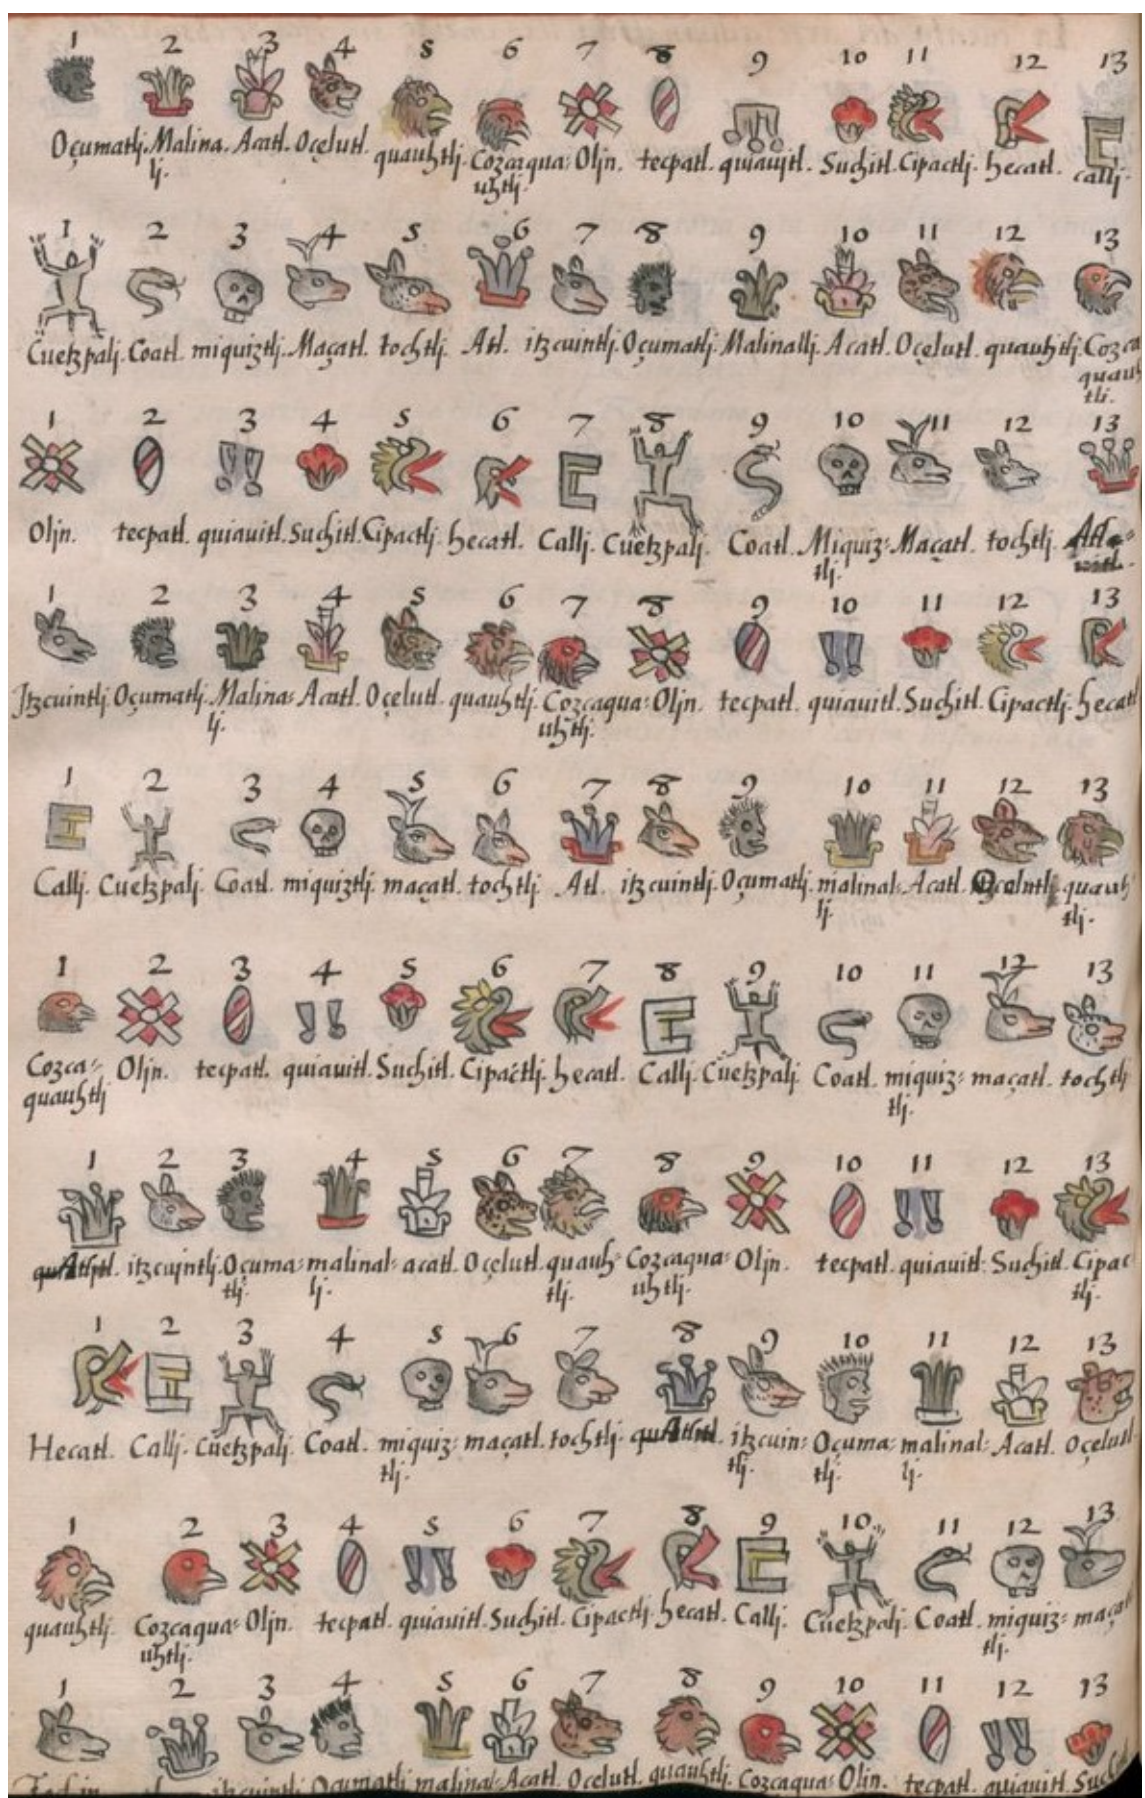 1 2 3 4 5 6 7 8 9 10 11 12 13
Oçumatlj. Malina. Acatl. Oçelutl. quauhtlj. Cozcaqua: Oljn. tecpatl. quiaujtl. Suchitl. Cipactlj. hecatl. callj.
lj. uhtlj.
1 2 3 4 5 6 7 8 9 10 11 12 13
Cuetzpalj. Coatl. miquiztlj. Maçatl. tochtlj. Atl. itzcuintlj. Oçumatlj. Malinallj. Acatl. Oçelutl. quauhtlj. Cozca
quauh
tli.
1 2 3 4 5 6 7 8 9 10 11 12 13
Oljn. tecpatl. quiauitl. Suchitl. Cipactlj. hecatl. Callj. Cuetzpalj. Coatl. Miquiz: Maçatl. tochtlj.
tlj.
1 2 3 4 5 6 7 8 9 10 11 12 13
Itzcuintlj. Oçumatlj. Malina: Acatl. Oçelutl. quauhtlj. Cozcaqua: Oljn. tecpatl. quiauitl. Suchitl. Cipactlj. hecatl
lj. uhtlj.
1 2 3 4 5 6 7 8 9 10 11 12 13
Callj. Cuetzpalj. Coatl. miquiztlj. maçatl. tochtlj. Atl. itzcuintlj. Oçumatlj. malinal: Acatl. quauh
lj. tlj.
1 2 3 4 5 6 7 8 9 10 11 12 13
Cozca: Oljn. tecpatl. quiauitl. Suchitl. Cipactlj. hecatl. Callj. Cuetzpalj Coatl. miquiz: maçatl. tochtlj
quauhtlj tlj.
1 2 3 4 5 6 7 8 9 10 11 12 13
itzcujntlj. Oçuma: malinal: acatl. Oçelutl. quauh: Cozcaqua: Oljn. tecpatl. quiauitl. Suchitl. Cipac
tlj. lj. tlj. uhtlj. tlj.
1 2 3 4 5 6 7 8 9 10 11 12 13
Hecatl. Callj. Cuetzpalj. Coatl. miquiz: maçatl. tochtlj. itzcuin: Oçuma: malinal: Acatl. Oçelutl.
tlj. tlj. tlj. lj.
1 2 3 4 5 6 7 8 9 10 11 12 13
quauhtlj. Cozcaqua: Oljn. tecpatl. quiauitl. Suchitl. Cipactlj. hecatl. Callj. Cuetzpalj. Coatl. miquiz: maçatl
uhtlj. tlj.
1 2 3 4 5 6 7 8 9 10 11 12 13
itzcuintlj Oçumatlj malinal: Acatl. Ocelutl. quauhtlj. Cozcaqua: Oljn. tecpatl. quiauitl.